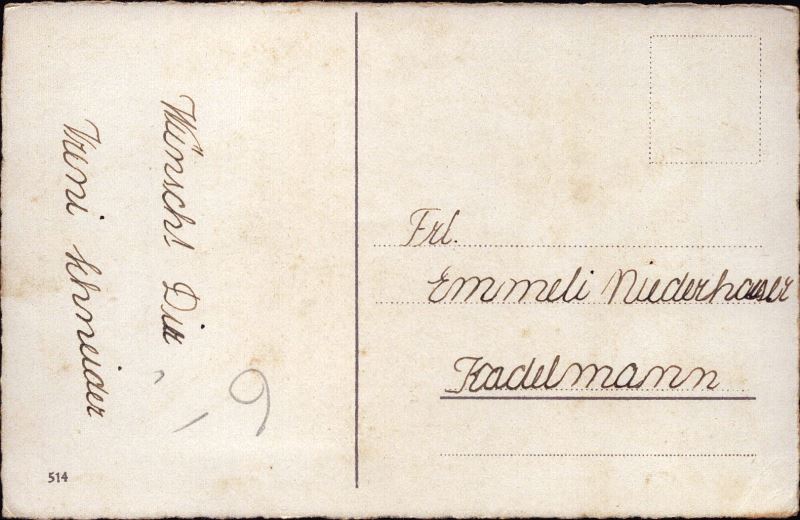 Wünscht Dir
Vreni Schneider
514
Frl.
Emmeli Niederhauser
Kadelmann